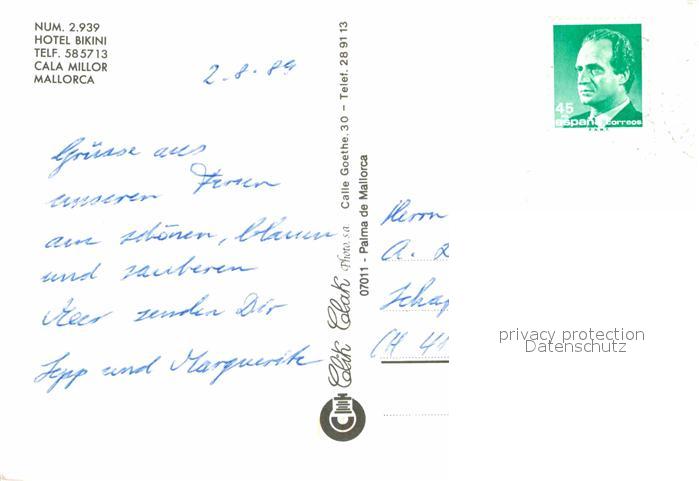 NUM. 2.939
HOTEL BIKINI
TELF. 585713
CALA MILLOR
MALLORCA
2.8.89
Grüsse aus
unseren Ferien
am schönen, blauen
und sauberen
Meer senden Dir
Sepp und Marguerite
Clik Clak Photo, s.a. Calle Goethe, 30 - Telef. 28 91 13
07011 - Palma de Mallorca
45
españa correos
Herrn
A.
CH 41
privacy protection
Datenschutz